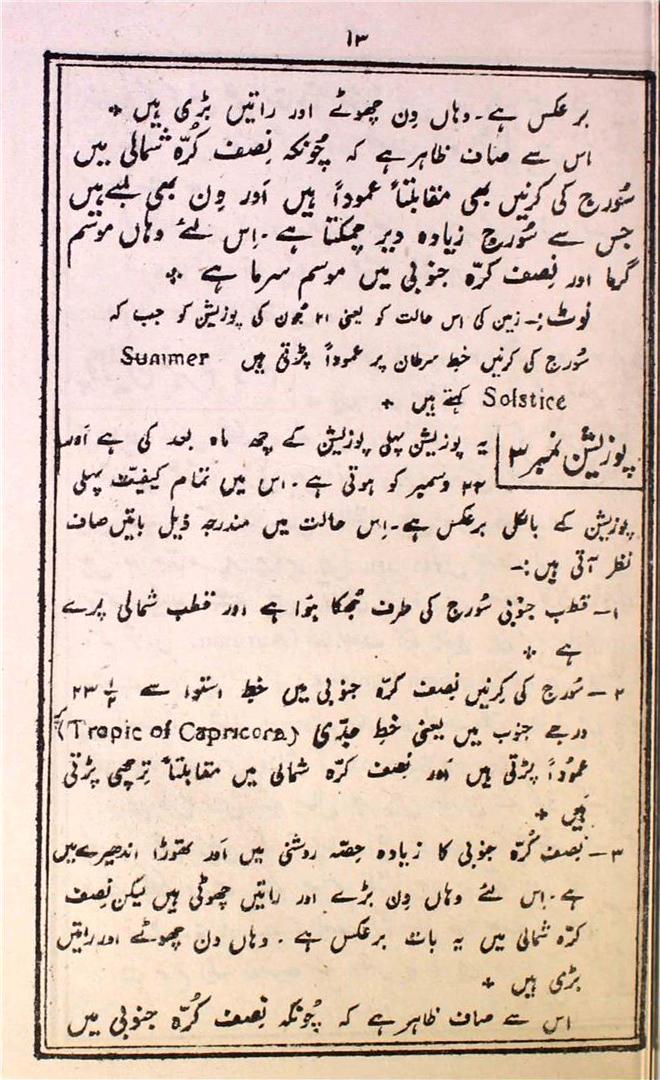 ۱۳
برعکس ہے۔ وہاں دِن چھوٹے اور راتیں بڑی ہیں +
اس سے صاف ظاہر ہے کہ چُونکہ نِصف کُرّہ شمالی میں
سُورج کی کرنیں بھی مقابلتاً عموداً ہیں اَور دِن بھی لمبے ہیں
جس سے سُورج زیادہ دیر چمکتا ہے۔ اِس لئے وہاں موسم
گرما اور نِصف کرّہ جنوبی میں موسم سرما ہے +
نوٹ:۔ زمین کی اس حالت کو یعنی ۲۱ جُون کی پوزیشن کو جب کہ
سُورج کی کرنیں خط سرطان پر عموداً پڑتی ہیں Summer
Solstice کہتے ہیں +
پوزیشن نمبر ۳ یہ پوزیشن پہلی پوزیشن کے چھ ماہ بعد کی ہے اَور
۲۲ دسمبر کو ہوتی ہے۔ اس میں تمام کیفیت پہلی
پوزیشن کے بالکل برعکس ہے۔ اِس حالت میں مندرجہ ذیل باتیں صاف
نظر آتی ہیں:۔
۱۔ قطب جنوبی سُورج کی طرف جُھکا ہؤا ہے اور قطب شمالی پرے
ہے +
۲۔ سُورج کی کِرنیں نِصف کرّہ جنوبی میں خط استوا سے ۲۳ ۱/۲
درجے جنوب میں یعنی خط جدّی (Tropic of Capricora) پر
عمُوداً پڑتی ہیں اَور نِصف کرّہ شمالی میں مقابلتاً تِرچھی پڑتی
ہَیں +
۳۔ نِصف کُرّہ جنوبی کا زیادہ حِصّہ روشنی میں اَور تھوڑا اندھیرے میں
ہے۔ اِس لئے وہاں دِن بڑے اور راتیں چھوٹی ہیں لیکن نِصف
کرّہ شمالی میں یہ بات برعکس ہے۔ وہاں دن چھوٹے اور راتیں
بڑی ہیں +
اس سے صاف ظاہر ہے کہ چُونکہ نِصف کُرّہ جنوبی میں